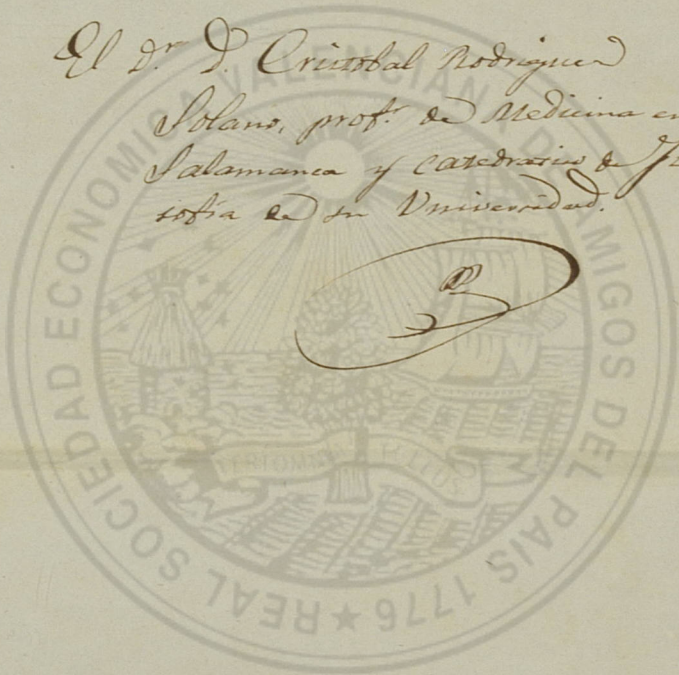 El Dr. D. Cristobal Rodriguez
Solano, prof.r de Medicina en
Salamanca y catedratico de
sofia de su Universidad.
REAL SOCIEDAD ECONOMICA VALENCIANA DE AMIGOS DEL PAIS 1776 ★